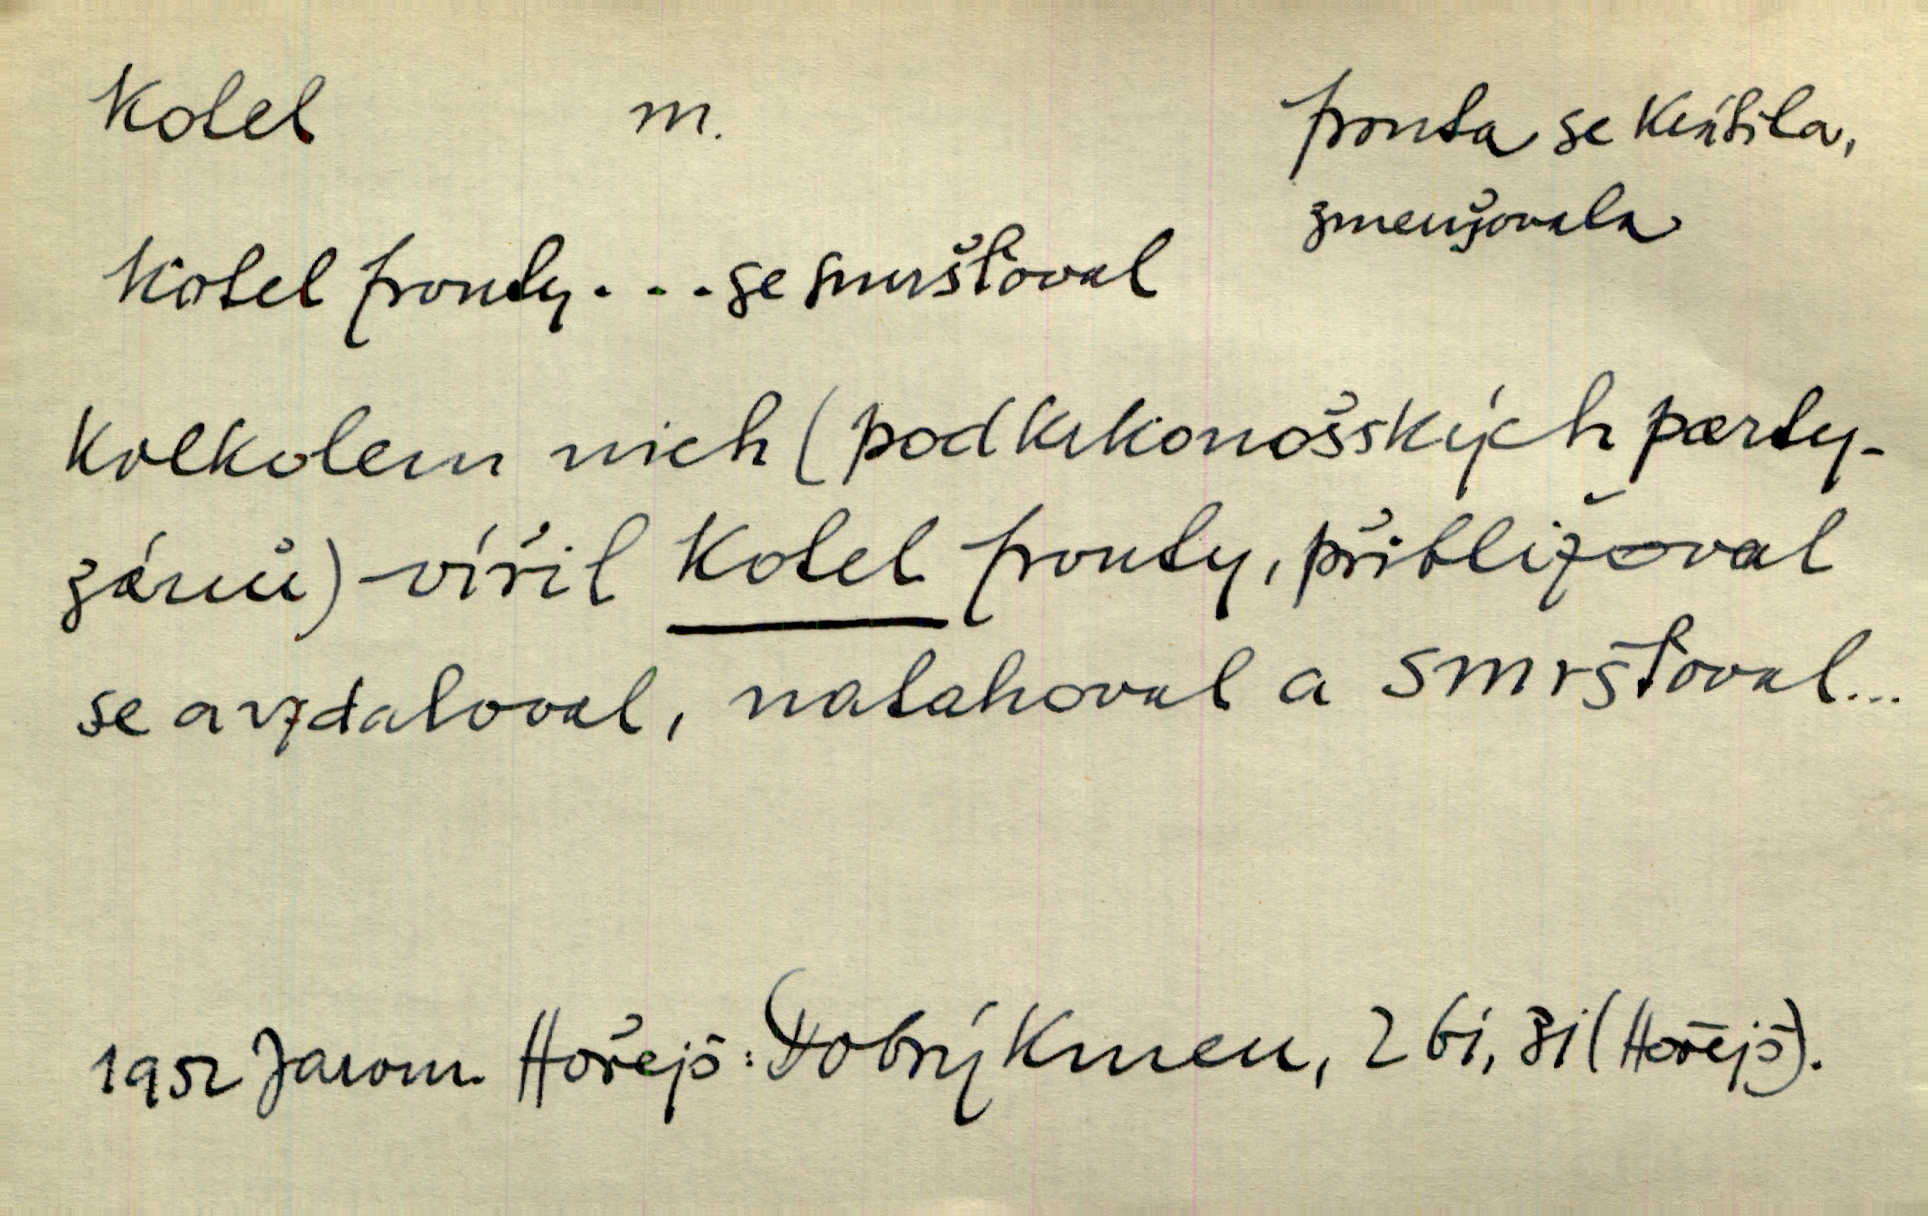 kotel m. fronta se krátila,
zmenšovala
kotel fronty . . . se smršťoval
kolkolem nich (podkrkonošských party-
zánů) vířil kotel fronty, přibližoval
se a vzdaloval, natahoval a smršťoval...
1952 Jarom. Hořejš: Dobrý kmen, 261, (Hořejš).